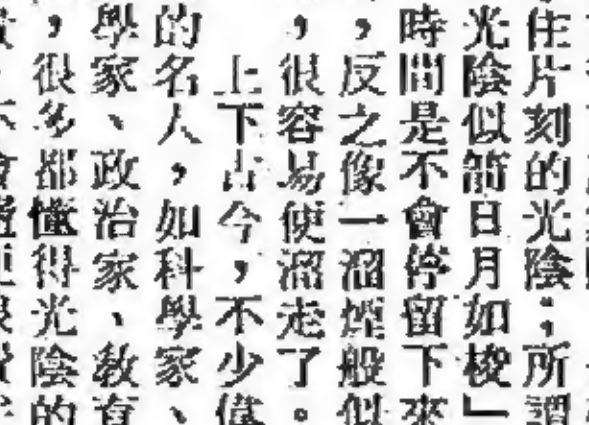 住片刻的光陰；所謂
光陰似箭日月如梭」
時間是不會停留下來
，反之像一溜煙般似
，很容易便溜走了。
上下古今，不少偉
的名人，如科學家、
學家、政治家、教育
，很多都懂得光陰的